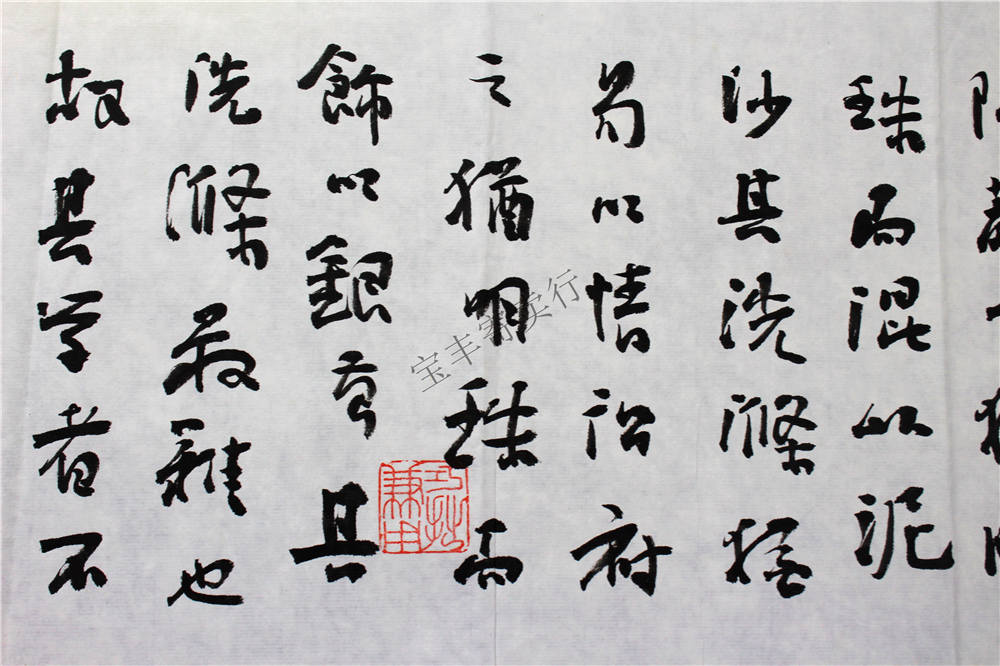 珠而混以泥
沙其洗滌猶
易以情识附
之猶明珠而
飾以銀青其
洗滌最難也
故其学者不
宝丰寄卖行